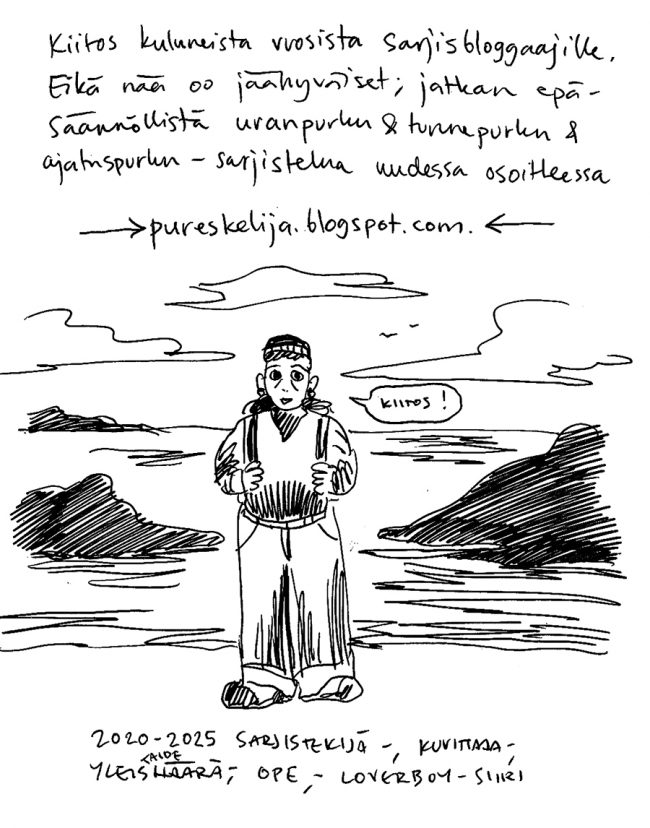 Kiitos kuluneista vuosista sarjisbloggaajille.
Eikä nää oo jäähyväiset; jatkan epä-
säännöllistä uranpurku & tunnepurku &
ajatuspurku - sarjistelua uudessa osoitteessa
→ pureskelija.blogspot.com. ←
KIITOS!
2020-2025 SARJISTEKIJÄ -, KUVITTAJA -,
TAIDE
YLEISHÄÄRÄ -, OPE, - LOVERBOY - SIIRI